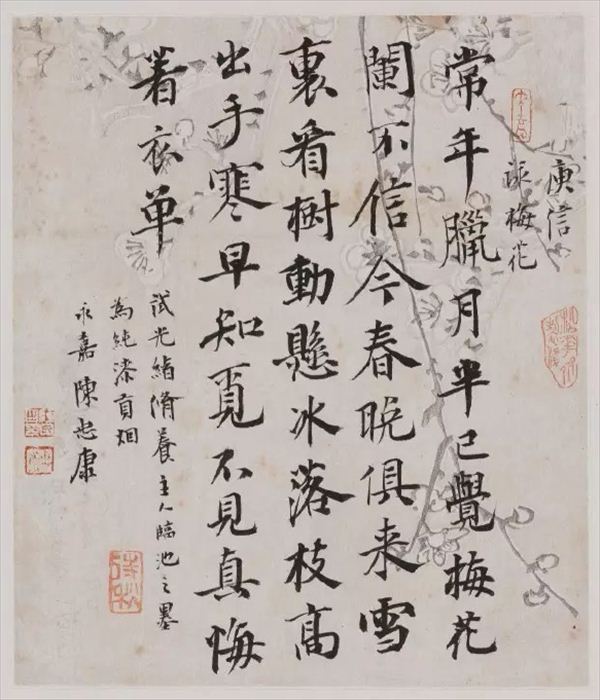 庾信
詠梅花
常年臘月半已覺梅花
闌不信今春晚俱來雪
裏看樹動懸冰落枝高
出手寒早知覓不見真悔
着衣單
試光緒脩養主人臨池之墨
為純漆貢烟
永嘉陳忠康